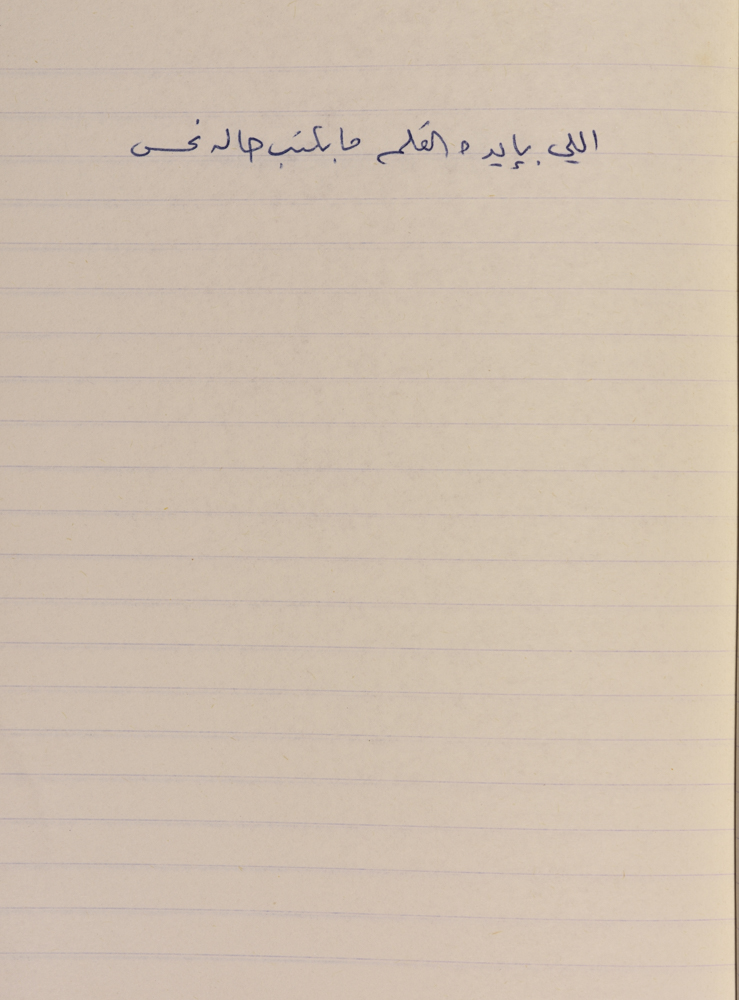 اللي بإيده القلم ما بكتب حاله نحس